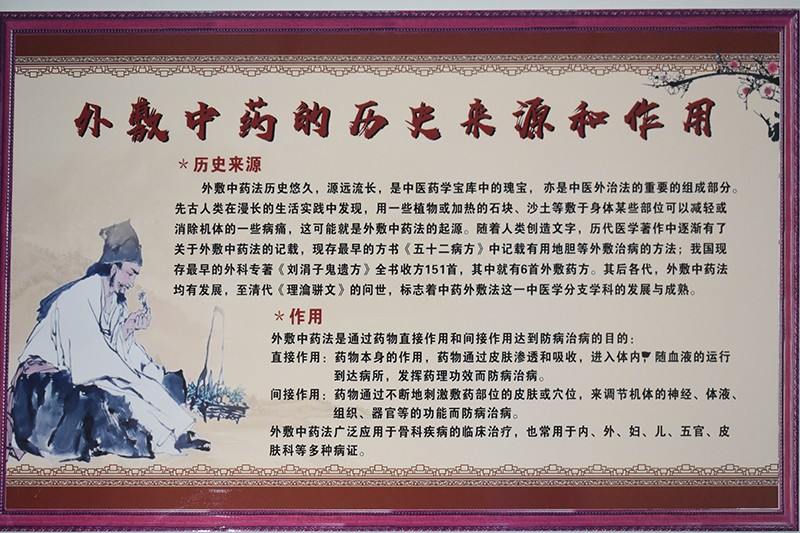 外敷中药的历史来源和作用
*历史来源
外敷中药法历史悠久，源远流长，是中医药学宝库中的瑰宝，亦是中医外治法的重要的组成部分。
先古人类在漫长的生活实践中发现，用一些植物或加热的石块、沙土等敷于身体某些部位可以减轻或
消除机体的一些病痛，这可能就是外敷中药法的起源。随着人类创造文字，历代医学著作中逐渐有了
关于外敷中药法的记载，现存最早的方书《五十二病方》中记载有用地胆等外敷治病的方法；我国现
存最早的外科专著《刘涓子鬼遗方》全书收方151首，其中就有6首外敷药方。其后各代，外敷中药法
均有发展，至清代《理瀹骈文》的问世，标志着中药外敷法这一中医学分支学科的发展与成熟。
*作用
外敷中药法是通过药物直接作用和间接作用达到防病治病的目的：
直接作用：药物本身的作用，药物通过皮肤渗透和吸收，进入体内，随血液的运行
到达病所，发挥药理功效而防病治病。
间接作用：药物通过不断地刺激敷药部位的皮肤或穴位，来调节机体的神经、体液、
组织、器官等的功能而防病治病。
外敷中药法广泛应用于骨科疾病的临床治疗，也常用于内、外、妇、儿、五官、皮
肤科等多种病证。